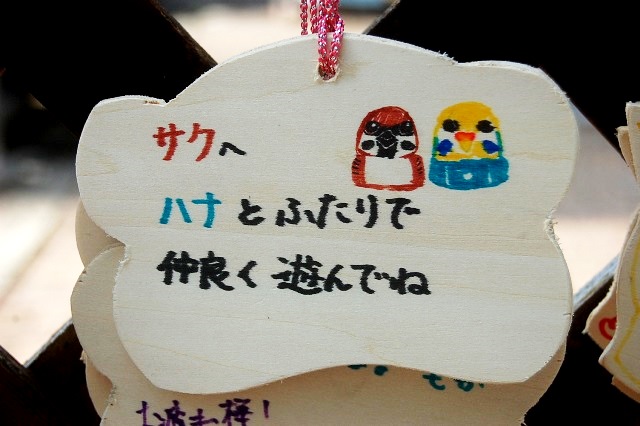 サクへ
ハナとふたりで
仲良く遊んでね